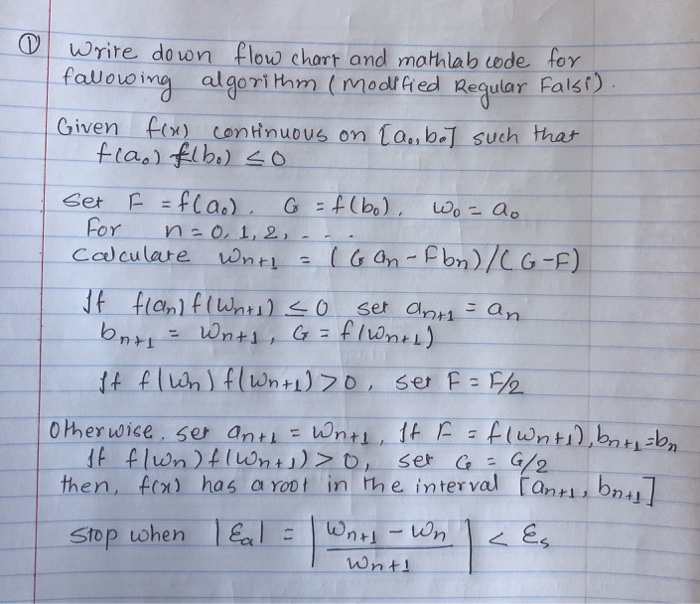 ① Write down flow chart and mathlab code for
fallowing algorithm (Modified Regular Falsi).
Given f(x) continuous on [a₀, b₀] such that
f(a₀) f(b₀) ≤ 0
Set F = f(a₀), G = f(b₀), w₀ = a₀
For n = 0, 1, 2, - - -
Calculate Wn+1 = (G an - Fbn)/(G-F)
If f(an) f(Wn+1) ≤ 0 set an+1 = an
bn+1 = Wn+1, G = f(Wn+1)
If f(Wn) f(Wn+1) > 0, set F = F/2
Otherwise, set an+1 = Wn+1, If F = f(Wn+1), bn+1 = bn
If f(Wn) f(Wn+1) > 0, set G = G/2
then, f(x) has a root in the interval [an+1, bn+1]
Stop when |Ɛa| = | Wn+1 - Wn / Wn+1 | < Ɛs